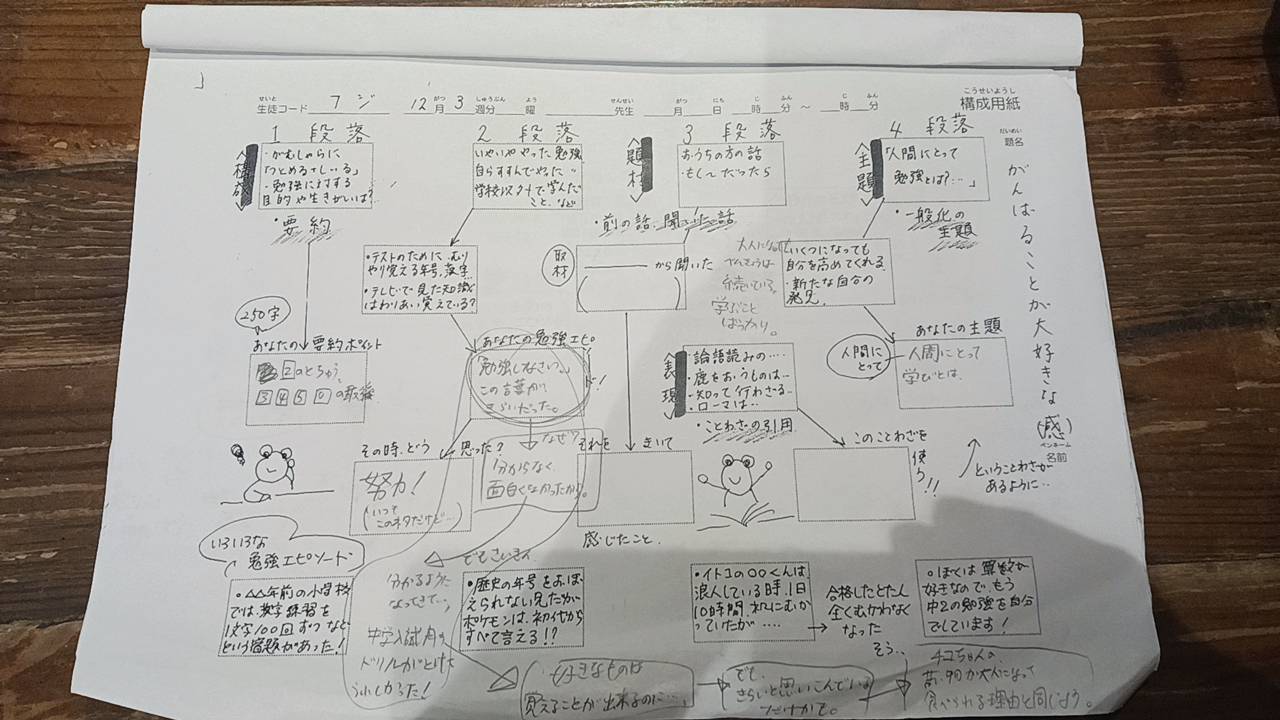 生徒コード フジ 12月3週分 曜 先生 月 日 時 分 ～ 時 分
構成用紙
題名
がんばることが大好きな(感)
ペンネーム
名前
1 段落
・がむしゃらに
「つとめる+しいる」
・勉強に対する
目的や生きがいは?
・要約
250字
あなたの要約ポイント
2のとちゅう、
3 4 5 0 の最後
2 段落
いやいややった勉強
自らすすんでやった〃
学校以外で学んだ
こと、など
・テストのために、むり
やり覚える年号、漢字
・テレビで見た知識
はわりあい覚えている?
あなたの勉強エピソード!
「勉強しなさい。」
この言葉が
きらいだった。
その時、どう思った?
努力!
(いつも
このネタだけど…)
なぜ?
分からなく
面白くなかったから。
3 段落
＜題材＞
おうちの方の話
・もし〜だったら
・前の話、聞いた話
取材
から聞いた
大人になっても
べんきょうは
続いている。
学ぶこと
ばっかり。
それを
きいて
感じたこと。
＜表現＞
・論語読みの……
・鹿をおうものは…
・知って行わざる…
・ローマは…
・ことわざの引用
このことわざを
使う!!
ということわざが
あるように…
4 段落
＜主題＞
「人間にとって
勉強とは?…」
・一般化の
主題
いくつになっても
自分を高めてくれる
・新たな自分の
発見
あなたの主題
人間に
とって
人間にとって
学びとは、
いろいろな
勉強エピソード
・△△年前の小学校
では、漢字練習を
1文字100回ずつなど
という宿題があった!
でもさいきん
分かるように
なってきて…、
中学入試用の
ドリルがとけた
うれしかった!
・歴史の年号をおぼ
えられない兄だが
ポケモンは、初代から
すべて言える!?
・イトコの○○くんは、
浪人している時、1日
10時間、机にむか
っていたが…
合格したとたん
全くむかわなく
なった
・ぼくは算数が
好きなので、もう
中2の勉強を自分
でしています!
好きなものは
覚えることが出来るのに…、
でも、
きらいと思いこんでいる
だけかも。
そう、、
チコちゃんの、
苦い物が大人になって
食べられる理由と同じよう。